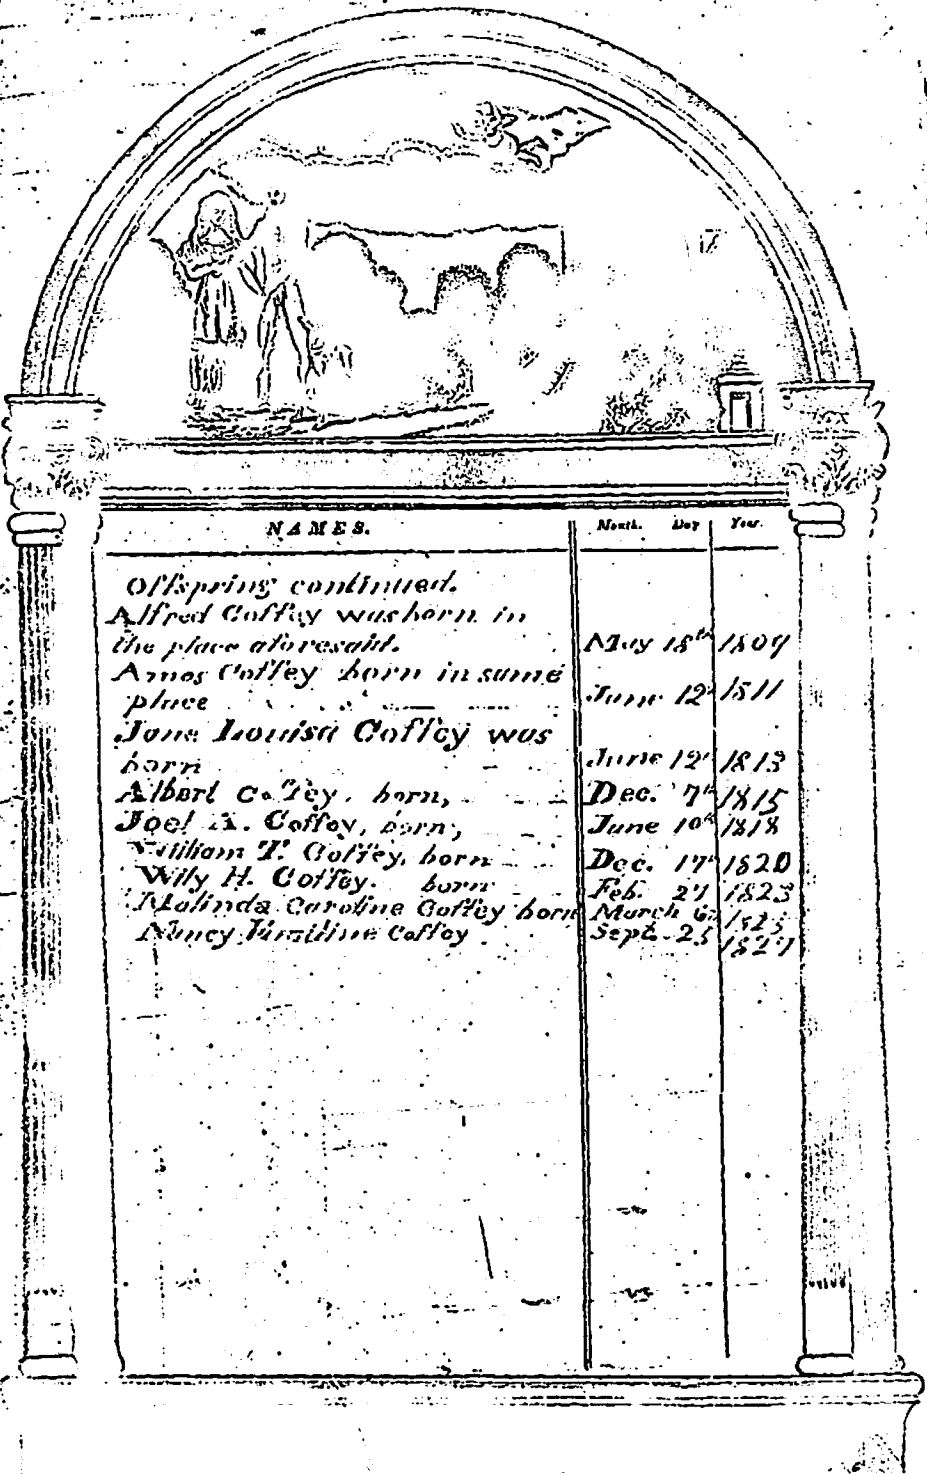 NAMES. Month. Day Year.
Offspring continued.
Alfred Coffey was born in
the place aforesaid. May 18th 1809
Amos Coffey born in same
place June 12 1811
Jane Louisa Coffey was
born June 12 1813
Albert Coffey, born, Dec. 7th 1815
Joel A. Coffey, born, June 10th 1818
William T. Coffey, born Dec. 17 1820
Wily H. Coffey. born Feb. 27 1823
Malinda Caroline Coffey born March 6 1825
Nancy Coffey Sept. 25 1827